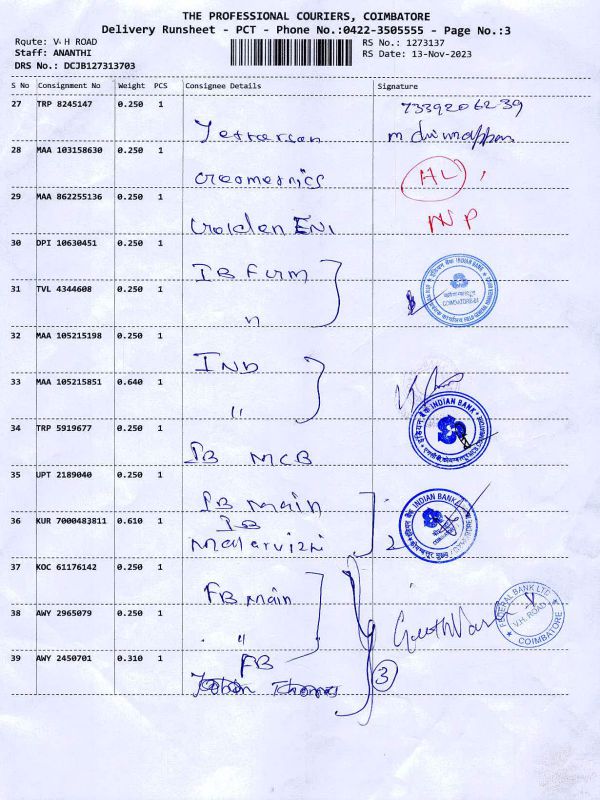 THE PROFESSIONAL COURIERS, COIMBATORE
Delivery Runsheet - PCT - Phone No.:0422-3505555 - Page No.:3
Route: V-H ROAD
Staff: ANANTHI
DRS No.: DCJB127313703
RS No.: 1273137
RS Date: 13-Nov-2023
S No Consignment No Weight PCS Consignee Details Signature
27 TRP 8245147 0.250 1 7339206239
28 MAA 103158630 0.250 1 HL
29 MAA 862255136 0.250 1 Golden ENT NP
30 DPI 10630451 0.250 1 IB Firm
31 TVL 4344608 0.250 1 "
INDIAN BANK
COIMBATORE
32 MAA 105215198 0.250 1 IND
33 MAA 105215851 0.640 1 "
INDIAN BANK
34 TRP 5919677 0.250 1 IB MCB
35 UPT 2189040 0.250 1 IB Main
36 KUR 7000483811 0.610 1 IB
Malarvizhi 2
INDIAN BANK
37 KOC 61176142 0.250 1 FB Main
38 AWY 2965079 0.250 1 "
FEDERAL BANK LTD
V.H. ROAD
COIMBATORE
39 AWY 2450701 0.310 1 FB
Thomas 3